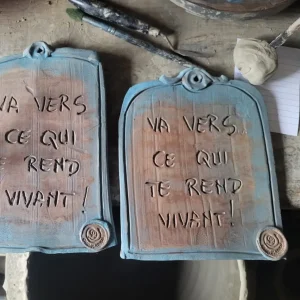 VA VERS
CE QUI
TE REND
VIVANT!
VA VERS
CE QUI
TE REND
VIVANT!